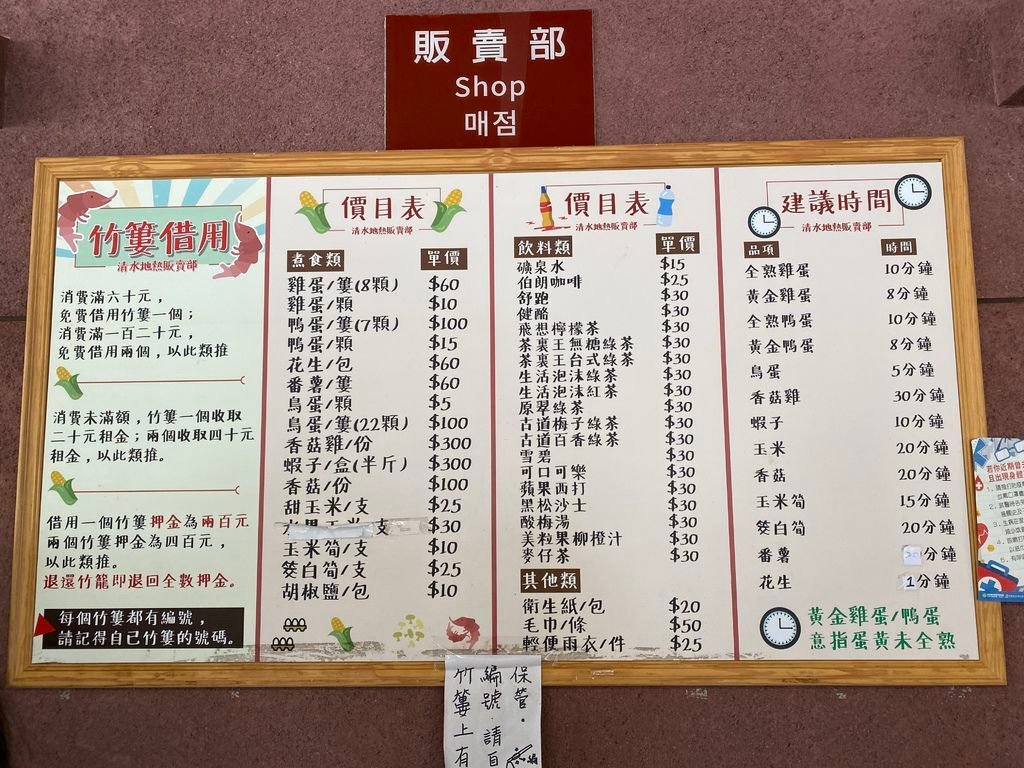 販賣部
Shop
매점
竹簍借用
清水地熱販賣部
消費滿六十元，
免費借用竹簍一個；
消費滿一百二十元，
免費借用兩個，以此類推
消費未滿額，竹簍一個收取
二十元租金；兩個收取四十元
租金，以此類推。
借用一個竹簍押金為兩百元
兩個竹簍押金為四百元，
以此類推。
退還竹籠即退回全數押金。
每個竹簍都有編號，
請記得自已竹簍的號碼。
價目表
清水地熱販賣部
煮食類 單價
雞蛋/簍(8顆) $60
雞蛋/顆 $10
鴨蛋/簍(7顆) $100
鴨蛋/顆 $15
花生/包 $60
番薯/簍 $60
鳥蛋/顆 $5
鳥蛋/簍(22顆) $100
香菇雞/份 $300
蝦子/盒(半斤) $300
香菇/份 $100
甜玉米/支 $25
水果玉米/支 $30
玉米筍/支 $10
筊白筍/支 $25
胡椒鹽/包 $10
價目表
清水地熱販賣部
飲料類 單價
礦泉水 $15
伯朗咖啡 $25
舒跑 $30
健酪 $30
飛想檸檬茶 $30
茶裏王無糖綠茶 $30
茶裏王台式綠茶 $30
生活泡沫綠茶 $30
生活泡沫紅茶 $30
原翠綠茶 $30
古道梅子綠茶 $30
古道百香綠茶 $30
雪碧 $30
可口可樂 $30
蘋果西打 $30
黑松沙士 $30
酸梅湯 $30
美粒果柳橙汁 $30
麥仔茶 $30
其他類
衛生紙/包 $20
毛巾/條 $50
輕便雨衣/件 $25
建議時間
清水地熱販賣部
品項 時間
全熟雞蛋 10分鐘
黃金雞蛋 8分鐘
全熟鴨蛋 10分鐘
黃金鴨蛋 8分鐘
鳥蛋 5分鐘
香菇雞 30分鐘
蝦子 10分鐘
玉米 20分鐘
香菇 20分鐘
玉米筍 15分鐘
筊白筍 20分鐘
番薯 分鐘
花生 1分鐘
黃金雞蛋/鴨蛋
意指蛋黃未全熟
保管．
編號．請自
竹簍上有
若你近期曾
且出現身體